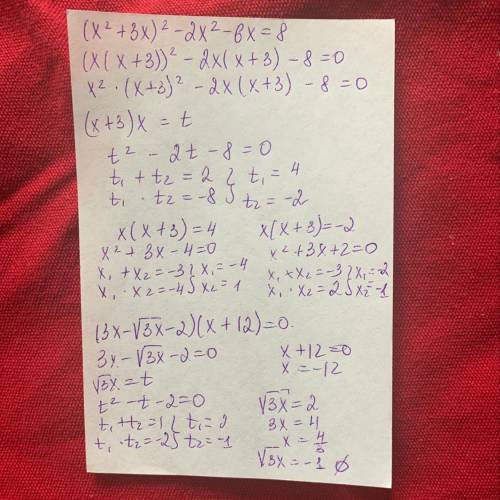 (x² + 3x)² - 2x² - 6x = 8
(x(x+3))² - 2x(x+3) - 8 = 0
x² · (x+3)² - 2x(x+3) - 8 = 0
(x+3)x = t
t² - 2t - 8 = 0
t₁ + t₂ = 2 } t₁ = 4
t₁ · t₂ = -8 } t₂ = -2
x(x+3) = 4
x² + 3x - 4 = 0
x₁ + x₂ = -3 } x₁ = -4
x₁ · x₂ = -4 } x₂ = 1
x(x+3) = -2
x² + 3x + 2 = 0
x₁ + x₂ = -3 } x₁ = -2
x₁ · x₂ = 2 } x₂ = -1
(3x - √3x - 2)(x + 12) = 0
3x - √3x - 2 = 0
√3x = t
t² - t - 2 = 0
t₁ + t₂ = 1 } t₁ = 2
t₁ · t₂ = -2 } t₂ = -1
x + 12 = 0
x = -12
√3x = 2
3x = 4
x = 4/3
√3x = -1 ∅